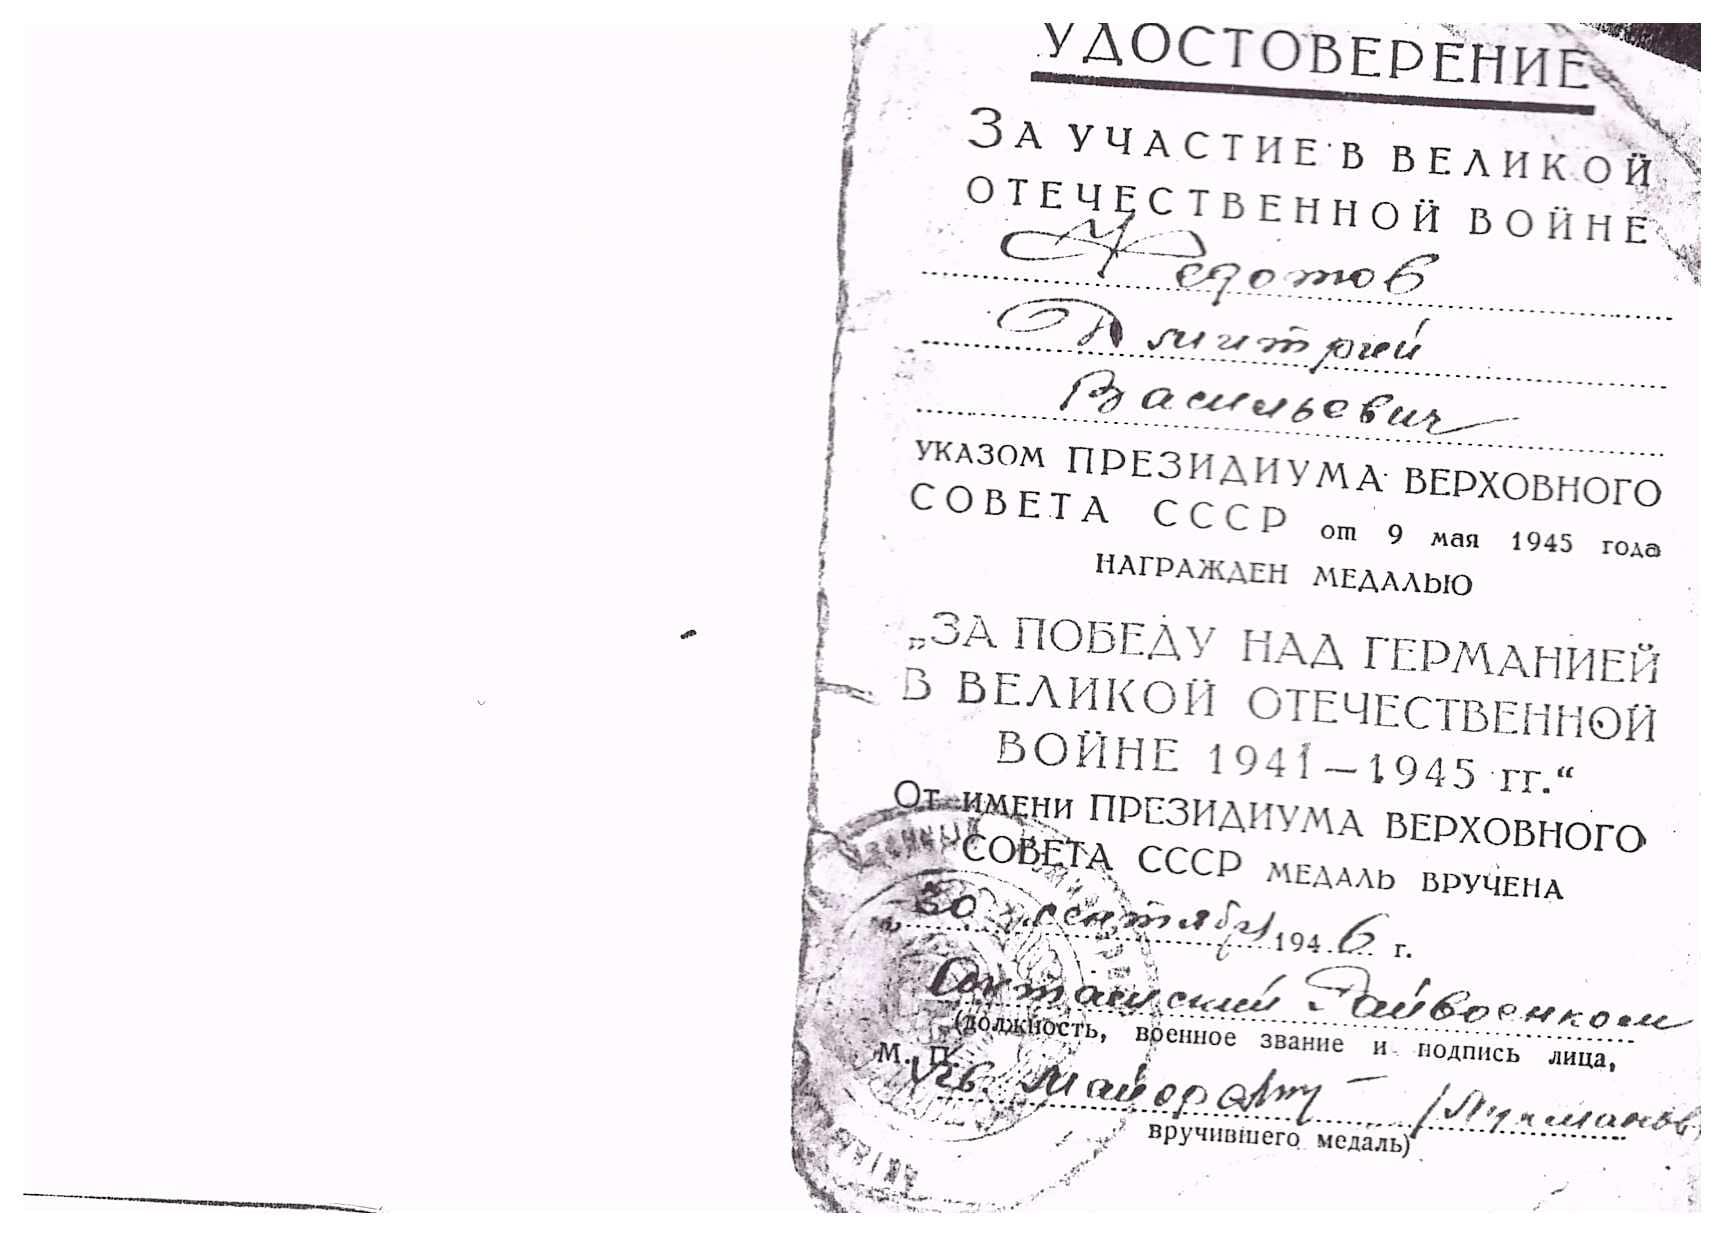 УДОСТОВЕРЕНИЕ
ЗА УЧАСТИЕ В ВЕЛИКОЙ
ОТЕЧЕСТВЕННОЙ ВОЙНЕ
Федотов
Дмитрий
Васильевич
УКАЗОМ ПРЕЗИДИУМА ВЕРХОВНОГО
СОВЕТА СССР от 9 мая 1945 года
НАГРАЖДЕН МЕДАЛЬЮ
„ЗА ПОБЕДУ НАД ГЕРМАНИЕЙ
В ВЕЛИКОЙ ОТЕЧЕСТВЕННОЙ
ВОЙНЕ 1941—1945 гг.“
От имени ПРЕЗИДИУМА ВЕРХОВНОГО
СОВЕТА СССР МЕДАЛЬ ВРУЧЕНА
„30 сентября 1946 г.
Райвоенком
(должность, военное звание и подпись лица,
М. П. майор
вручившего медаль)